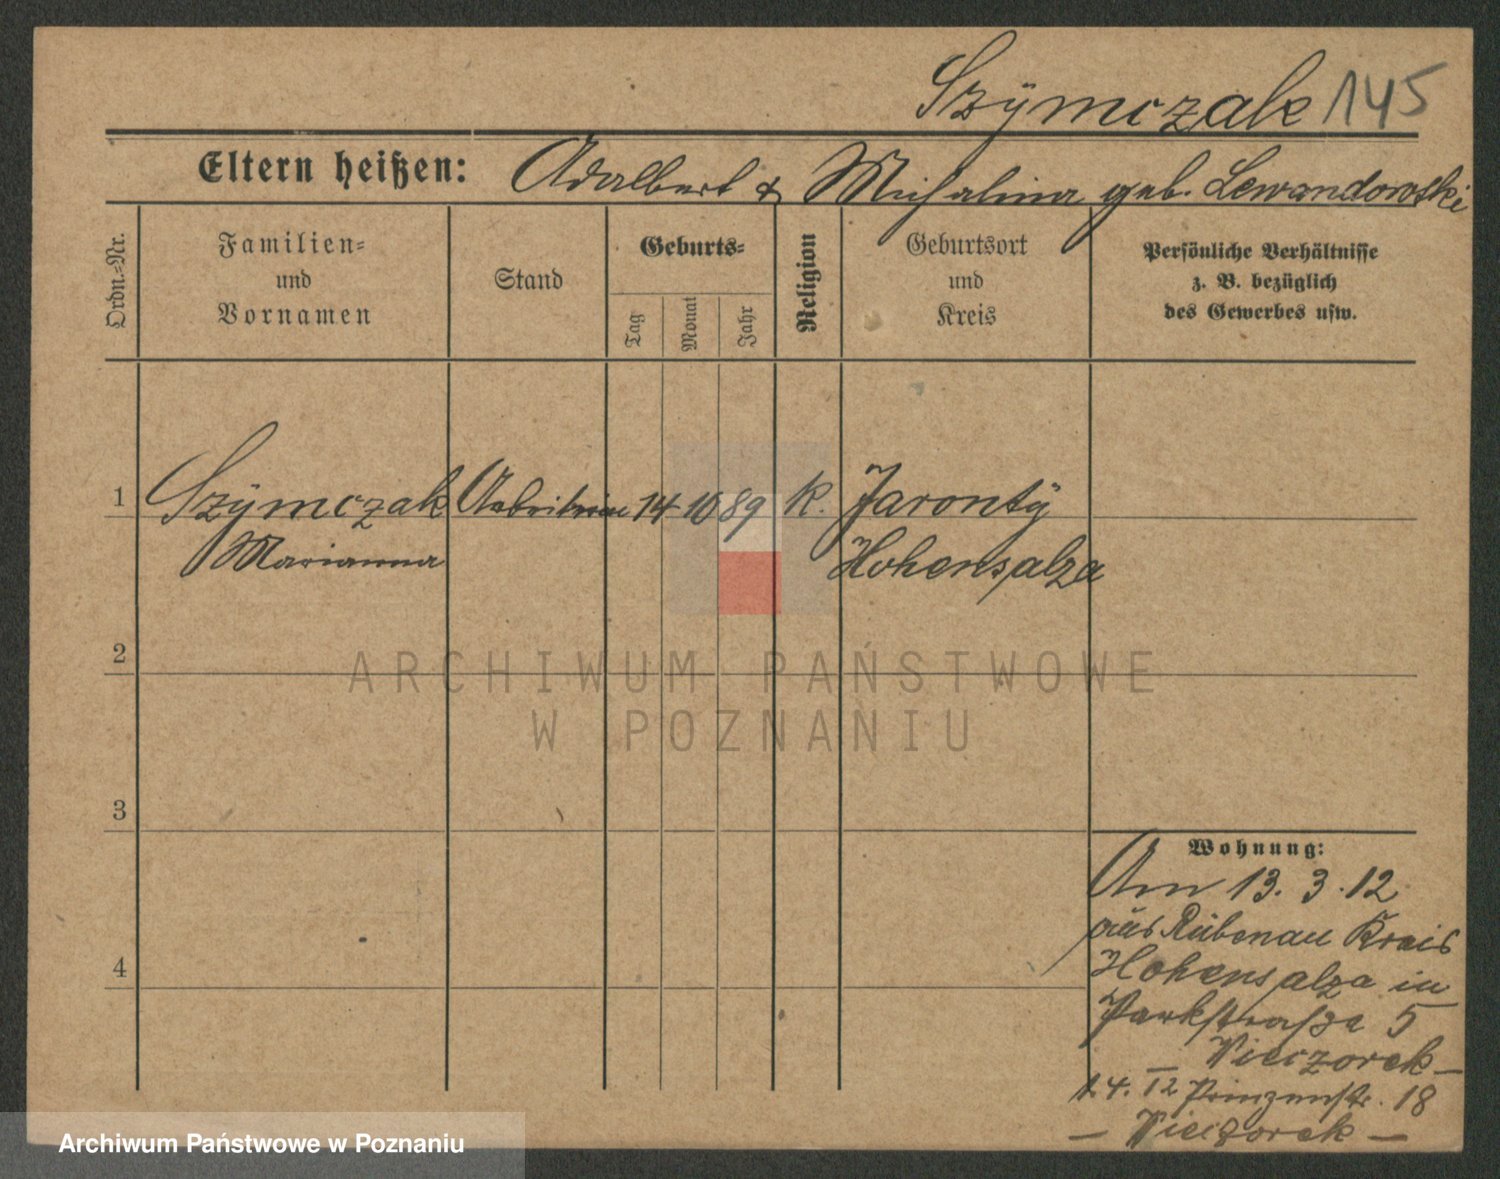 Szÿmczak 145
Eltern heißen: Adalbert & Michalina geb. Lewandowski
Ordn.-Nr.
Familien-
und
Vornamen
Stand
Geburts-
Tag
Monat
Jahr
Religion
Geburtsort
und
Kreis
Persönliche Verhältnisse
z. B. bezüglich
des Gewerbes usw.
1 Szÿmczak Arbeiterin 14 10 89 k. Jarontÿ
Marianna Hohensalza
2
ARCHIWUM PAŃSTWOWE
W POZNANIU
3
Wohnung:
Am 13. 3. 12
aus Rübenau Kreis
4
Hohensalza in
Parkstraße 5
Vieczorek –
1.4.12 Prinzenstr. 18
– Vieczorek –
Archiwum Państwowe w Poznaniu